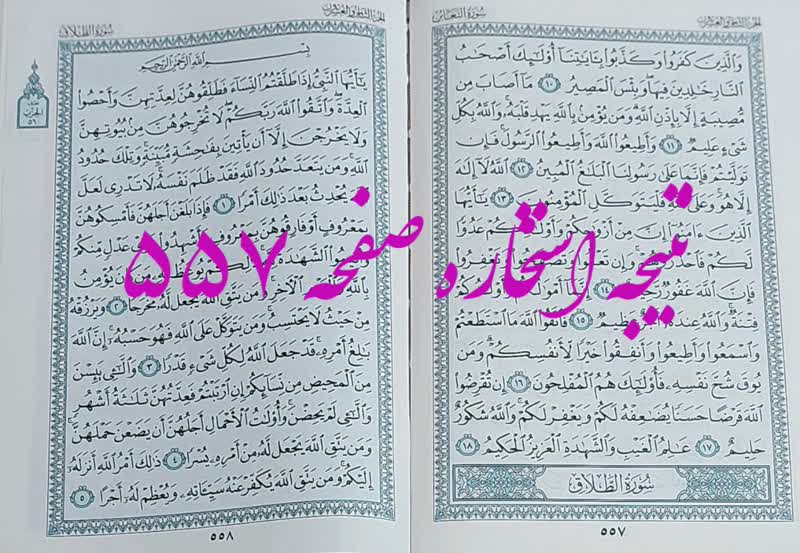 سُورَةُ التَّغَابُنِ
وَالَّذِينَ كَفَرُوا وَكَذَّبُوا بِآيَاتِنَا أُولَٰئِكَ أَصْحَابُ
النَّارِ خَالِدِينَ فِيهَا وَبِئْسَ الْمَصِيرُ ١٠ مَا أَصَابَ مِن
مُّصِيبَةٍ إِلَّا بِإِذْنِ اللَّهِ وَمَن يُؤْمِن بِاللَّهِ يَهْدِ قَلْبَهُ وَاللَّهُ بِكُلِّ
شَيْءٍ عَلِيمٌ ١١ وَأَطِيعُوا اللَّهَ وَأَطِيعُوا الرَّسُولَ فَإِن
تَوَلَّيْتُمْ فَإِنَّمَا عَلَىٰ رَسُولِنَا الْبَلَاغُ الْمُبِينُ ١٢ اللَّهُ لَا إِلَٰهَ
إِلَّا هُوَ وَعَلَى اللَّهِ فَلْيَتَوَكَّلِ الْمُؤْمِنُونَ ١٣ يَا أَيُّهَا
الَّذِينَ آمَنُوا إِنَّ مِنْ أَزْوَاجِكُمْ وَأَوْلَادِكُمْ عَدُوًّا
لَّكُمْ فَاحْذَرُوهُمْ وَإِن تَعْفُوا وَتَصْفَحُوا وَتَغْفِرُوا
فَإِنَّ اللَّهَ غَفُورٌ رَّحِيمٌ ١٤ إِنَّمَا أَمْوَالُكُمْ وَأَوْلَادُكُمْ
فِتْنَةٌ وَاللَّهُ عِندَهُ أَجْرٌ عَظِيمٌ ١٥ فَاتَّقُوا اللَّهَ مَا اسْتَطَعْتُمْ
وَاسْمَعُوا وَأَطِيعُوا وَأَنفِقُوا خَيْرًا لِّأَنفُسِكُمْ وَمَن
يُوقَ شُحَّ نَفْسِهِ فَأُولَٰئِكَ هُمُ الْمُفْلِحُونَ ١٦ إِن تُقْرِضُوا
اللَّهَ قَرْضًا حَسَنًا يُضَاعِفْهُ لَكُمْ وَيَغْفِرْ لَكُمْ وَاللَّهُ شَكُورٌ
حَلِيمٌ ١٧ عَالِمُ الْغَيْبِ وَالشَّهَادَةِ الْعَزِيزُ الْحَكِيمُ ١٨
سُورَةُ الطَّلَاقِ
٥٥٧
سُورَةُ الطَّلَاقِ
بِسْمِ اللَّهِ الرَّحْمَٰنِ الرَّحِيمِ
يَا أَيُّهَا النَّبِيُّ إِذَا طَلَّقْتُمُ النِّسَاءَ فَطَلِّقُوهُنَّ لِعِدَّتِهِنَّ وَأَحْصُوا
الْعِدَّةَ وَاتَّقُوا اللَّهَ رَبَّكُمْ لَا تُخْرِجُوهُنَّ مِن بُيُوتِهِنَّ
وَلَا يَخْرُجْنَ إِلَّا أَن يَأْتِينَ بِفَاحِشَةٍ مُّبَيِّنَةٍ وَتِلْكَ حُدُودُ
اللَّهِ وَمَن يَتَعَدَّ حُدُودَ اللَّهِ فَقَدْ ظَلَمَ نَفْسَهُ لَا تَدْرِي لَعَلَّ
اللَّهَ يُحْدِثُ بَعْدَ ذَٰلِكَ أَمْرًا ١ فَإِذَا بَلَغْنَ أَجَلَهُنَّ فَأَمْسِكُوهُنَّ
بِمَعْرُوفٍ أَوْ فَارِقُوهُنَّ بِمَعْرُوفٍ وَأَشْهِدُوا ذَوَيْ عَدْلٍ مِّنكُمْ
وَأَقِيمُوا الشَّهَادَةَ لِلَّهِ ذَٰلِكُمْ يُوعَظُ بِهِ مَن كَانَ يُؤْمِنُ
بِاللَّهِ وَالْيَوْمِ الْآخِرِ وَمَن يَتَّقِ اللَّهَ يَجْعَل لَّهُ مَخْرَجًا ٢ وَيَرْزُقْهُ
مِنْ حَيْثُ لَا يَحْتَسِبُ وَمَن يَتَوَكَّلْ عَلَى اللَّهِ فَهُوَ حَسْبُهُ إِنَّ اللَّهَ
بَالِغُ أَمْرِهِ قَدْ جَعَلَ اللَّهُ لِكُلِّ شَيْءٍ قَدْرًا ٣ وَاللَّائِي يَئِسْنَ
مِنَ الْمَحِيضِ مِن نِّسَائِكُمْ إِنِ ارْتَبْتُمْ فَعِدَّتُهُنَّ ثَلَاثَةُ أَشْهُرٍ
وَاللَّائِي لَمْ يَحِضْنَ وَأُولَاتُ الْأَحْمَالِ أَجَلُهُنَّ أَن يَضَعْنَ حَمْلَهُنَّ
وَمَن يَتَّقِ اللَّهَ يَجْعَل لَّهُ مِنْ أَمْرِهِ يُسْرًا ٤ ذَٰلِكَ أَمْرُ اللَّهِ أَنزَلَهُ
إِلَيْكُمْ وَمَن يَتَّقِ اللَّهَ يُكَفِّرْ عَنْهُ سَيِّئَاتِهِ وَيُعْظِمْ لَهُ أَجْرًا ٥
٥٥٨
نتیجه استخاره صفحه ۵۵۷